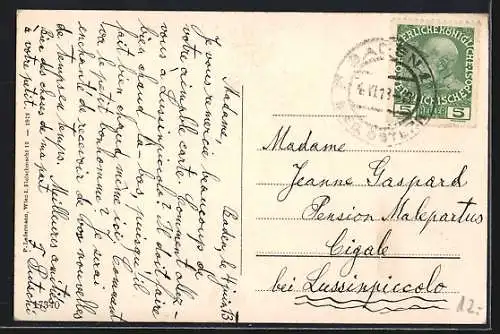 Baden, le 4 juin 13
Madame,
Je vous remercie beaucoup de
votre aimable carte. Comment allez-
vous à Lussinpiccolo? Il doit faire
bien chaud là-bas, puisqu'il
fait bien chaud même ici. Comment
va le petit bonhomme? Je serai
enchantée de recevoir de vos nouvelles
de temps en temps. Meilleures amitiés
Bien des choses de ma part
à votre petit.
1734
Wien I, Fleischmarkt 16 - 1912
BADEN 1
4.VI.13
KAISERLICHE KÖNIGLICHE
ÖSTERREICHISCHE POST
5 5
Madame
Jeanne Gaspard
Pension Malepartus
Cigale
bei Lussinpiccolo
12.-